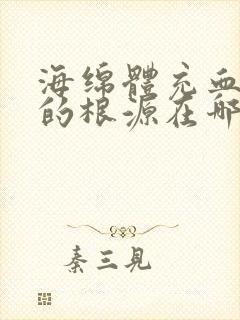 海绵體充血
的根源在哪
秦三見